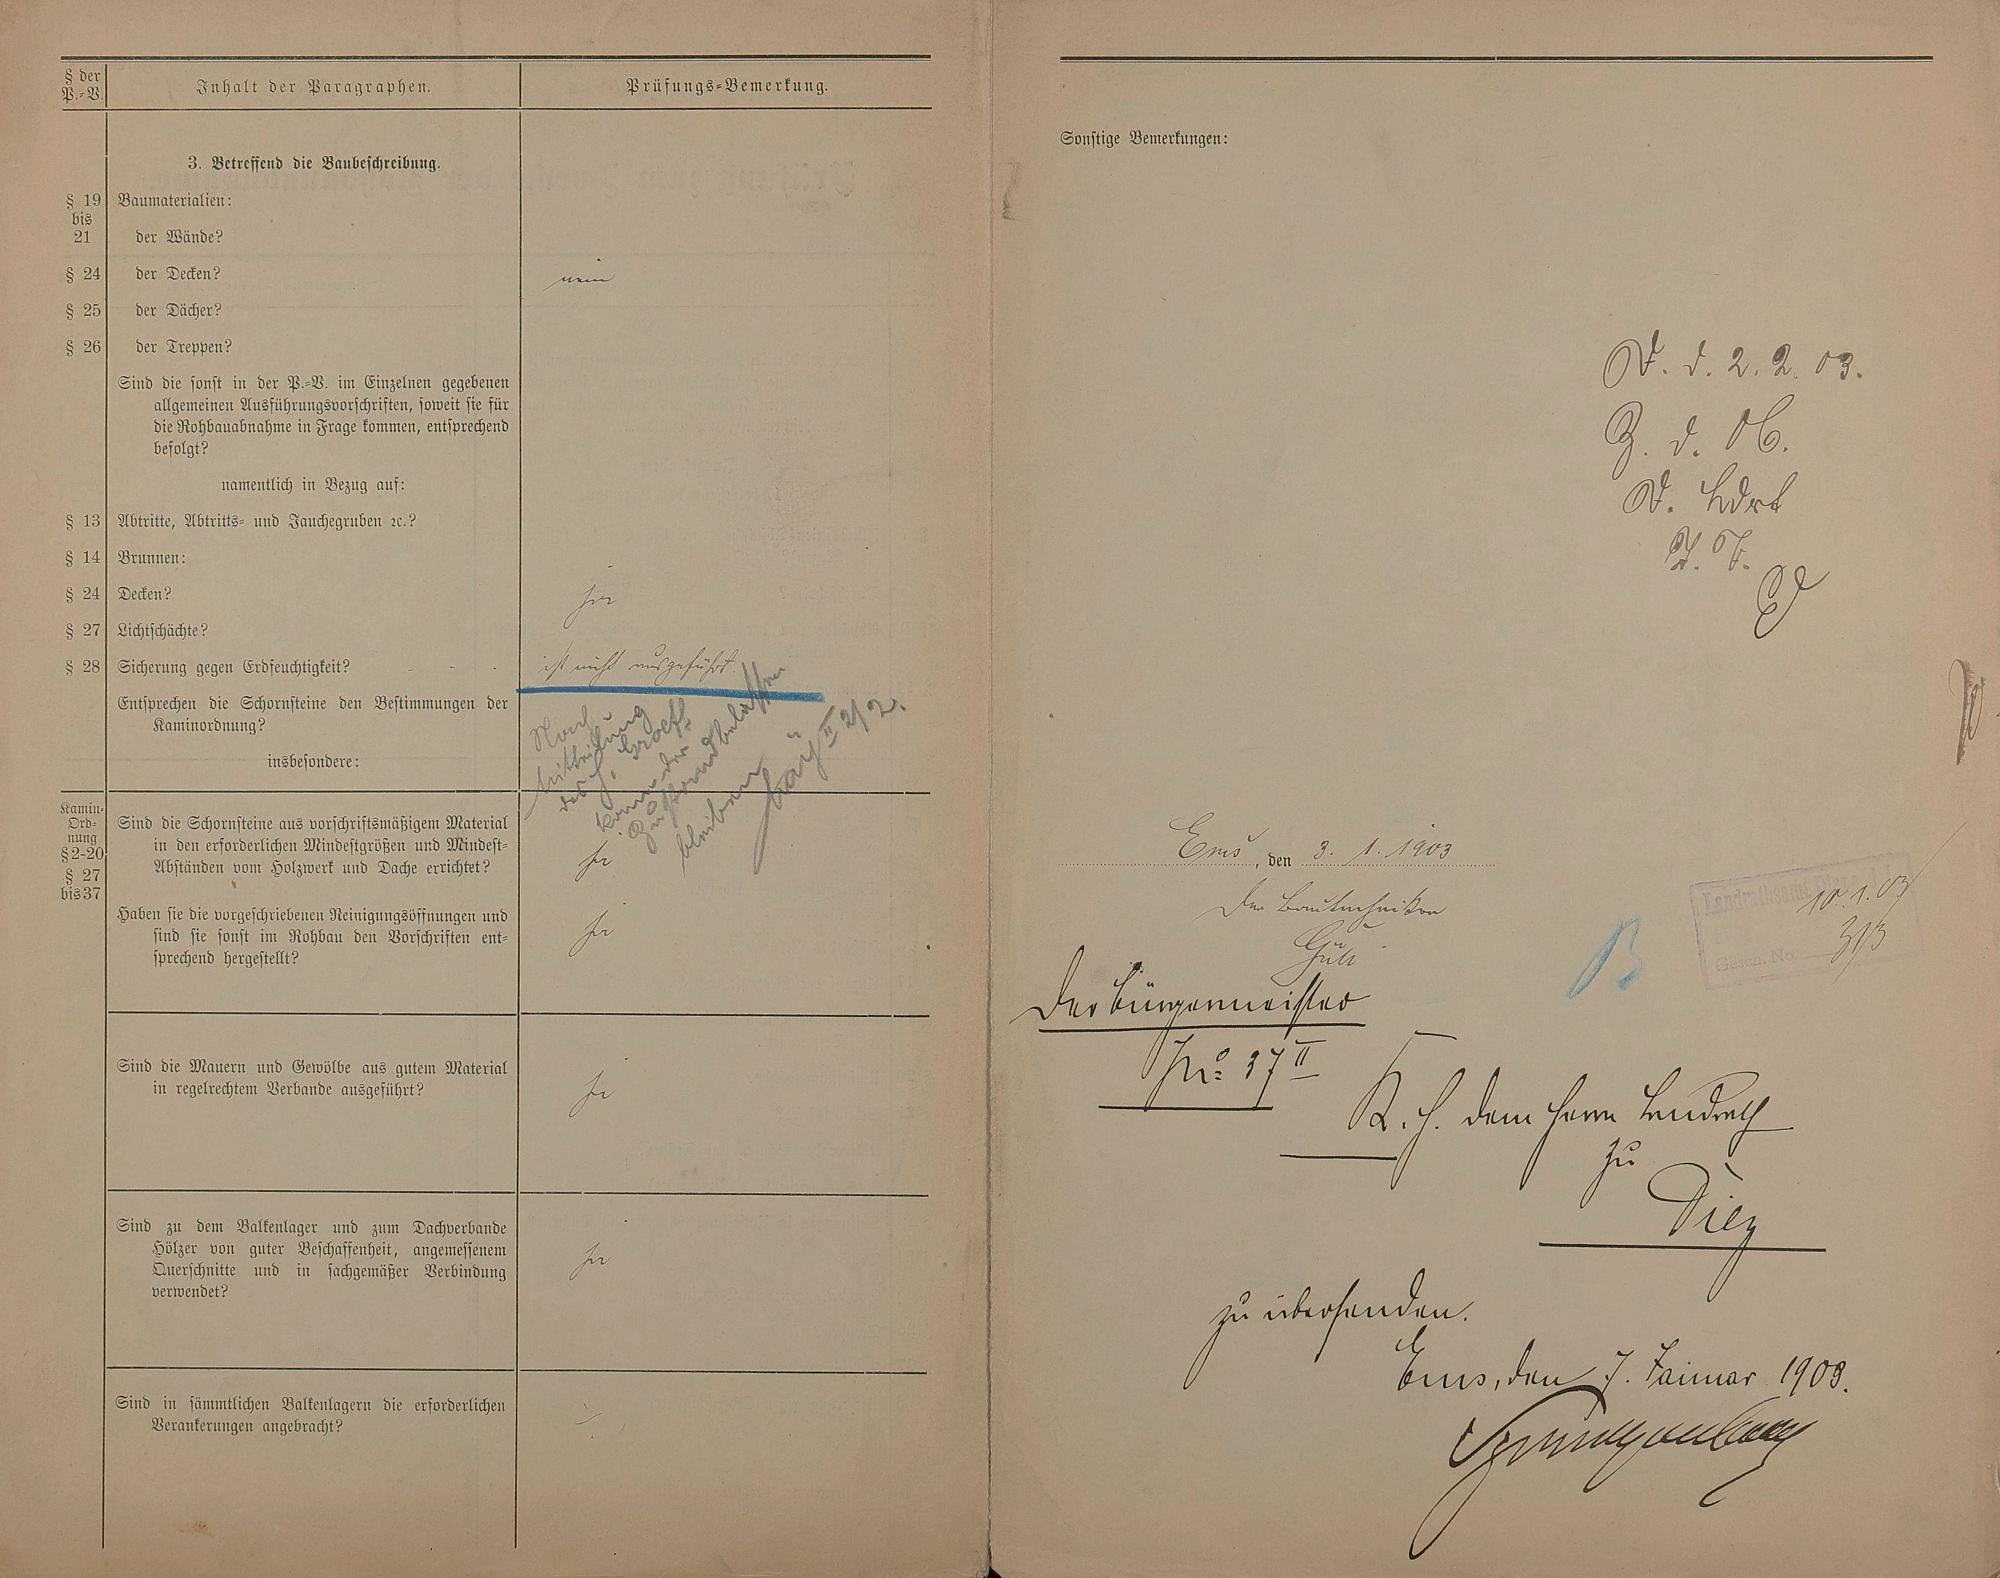 § der
P.-V.
Inhalt der Paragraphen.
Prüfungs-Bemerkung.
3. Betreffend die Baubeschreibung.
§ 19
bis
21
Baumaterialien:
der Wände?
§ 24 der Decken?
nein
§ 25 der Dächer?
§ 26 der Treppen?
Sind die sonst in der P.-V. im Einzelnen gegebenen
allgemeinen Ausführungsvorschriften, soweit sie für
die Rohbauabnahme in Frage kommen, entsprechend
befolgt?
namentlich in Bezug auf:
§ 13 Abtritte, Abtritts- und Jauchegruben ꝛc.?
§ 14 Brunnen:
§ 24 Decken?
ja
§ 27 Lichtschächte?
§ 28 Sicherung gegen Erdfeuchtigkeit?
ist nicht ausgeführt
Entsprechen die Schornsteine den Bestimmungen der
Kaminordnung?
insbesondere:
Nach
Mitteilung
des H.
kann der
Zustand belassen
bleiben
II 2/2.
Kamin-
Ord-
nung
§ 2-20
§ 27
bis 37
Sind die Schornsteine aus vorschriftsmäßigem Material
in den erforderlichen Mindestgrößen und Mindest-
Abständen vom Holzwerk und Dache errichtet?
ja
Haben sie die vorgeschriebenen Reinigungsöffnungen und
sind sie sonst im Rohbau den Vorschriften ent-
sprechend hergestellt?
ja
Sind die Mauern und Gewölbe aus gutem Material
in regelrechtem Verbande ausgeführt?
ja
Sind zu dem Balkenlager und zum Dachverbande
Hölzer von guter Beschaffenheit, angemessenem
Querschnitte und in sachgemäßer Verbindung
verwendet?
ja
Sind in sämmtlichen Balkenlagern die erforderlichen
Verankerungen angebracht?
Sonstige Bemerkungen:
D. d. 2. 2. 03.
Z. d. A.
D. Ldrt
I. V.
Ems, den 3. 1. 1903
Der Bautechniker
Landrathsamt Diez
10. 1. 03
Gesch. No. 313
B
Der Bürgermeister
No. 37 II
K. H. dem Herrn Landrath
zu
Diez
zu übersenden.
Ems, den 7. Januar 1903.